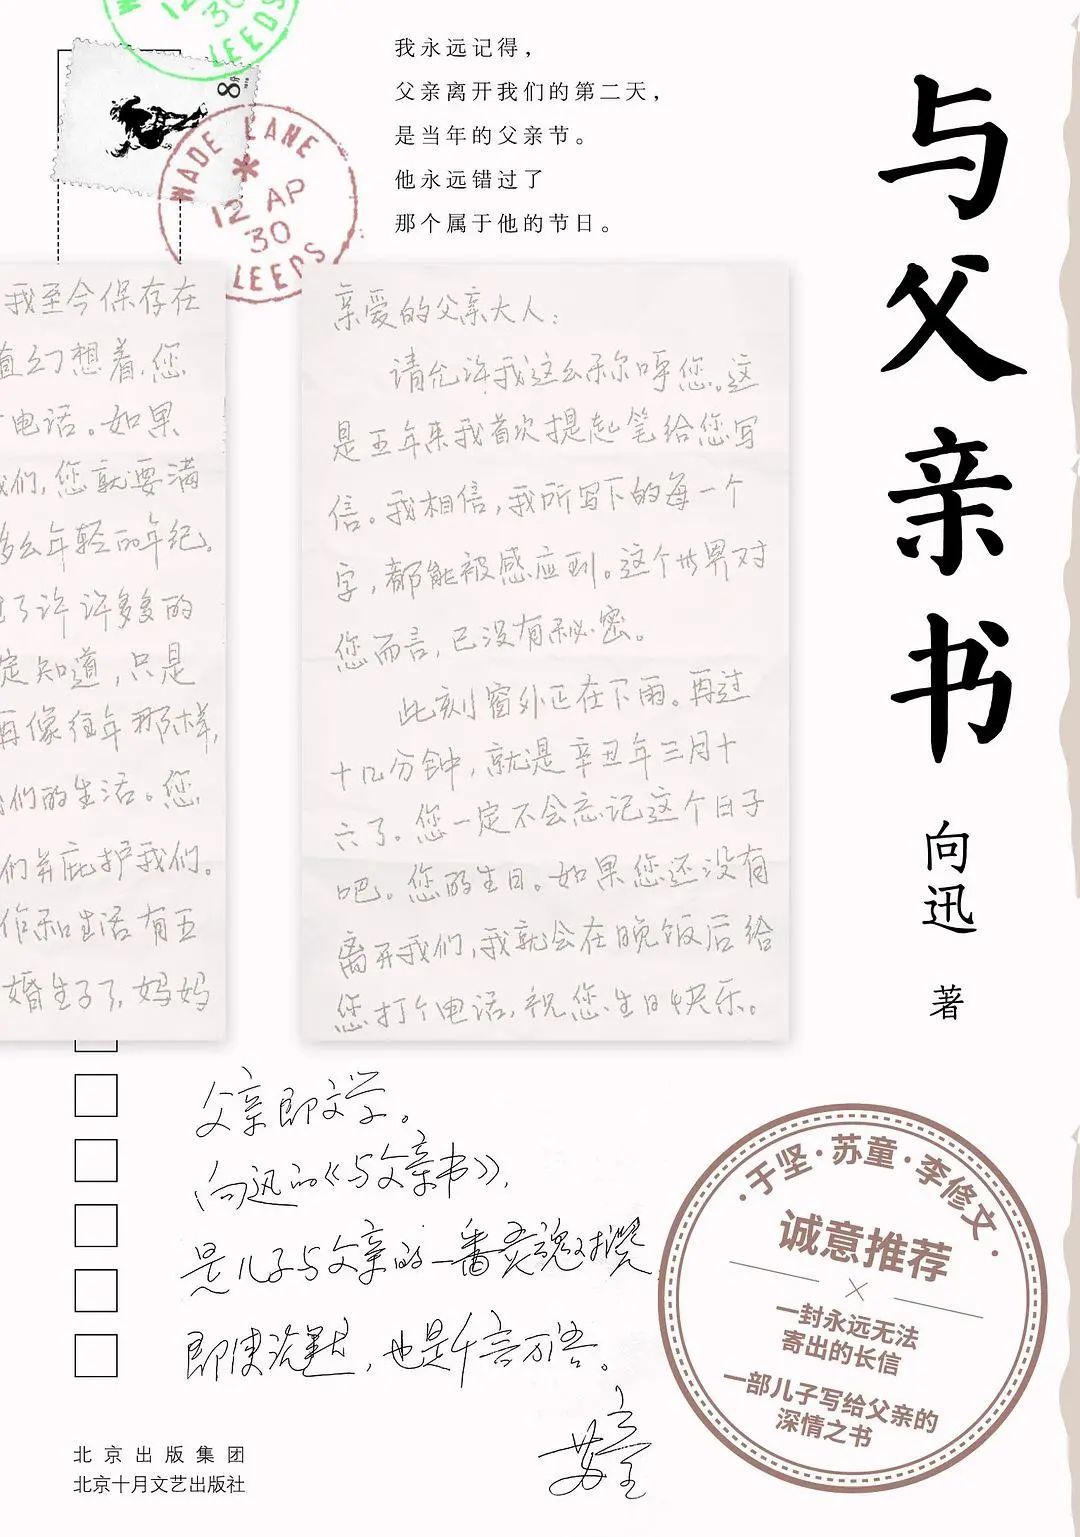 我永远记得，
父亲离开我们的第二天，
是当年的父亲节。
他永远错过了
那个属于他的节日。
与父亲书
向迅
著
8分
WADE LANE
12 AP
30
LEEDS
12 AP
30
LEEDS
我至今保存在
直幻想着，您
电话。如果
我们，您就要满
多么年轻的年纪。
了许许多多的
定知道，只是
再像往年那样，
我们的生活。您
们并庇护我们。
作和生活有五
婚生子了，妈妈
亲爱的父亲大人：
请允许我这么称呼您。这
是五年来我首次提起笔给您写
信。我相信，我所写下的每一个
字，都能被感应到。这个世界对
您而言，已没有秘密。
此刻窗外正在下雨。再过
十几分钟，就是辛丑年三月十
六了。您一定不会忘记这个日子
吧。您的生日。如果您还没有
离开我们，我就会在晚饭后给
您打个电话，祝您生日快乐。
父亲即文学。
向迅的《与父亲书》，
是儿子与父亲的一番灵魂对撰
即使沉默，也是千言万语。
苏童
·于坚·苏童·李修文·
诚意推荐
一封永远无法
寄出的长信
一部儿子写给父亲的
深情之书
北京出版集团
北京十月文艺出版社